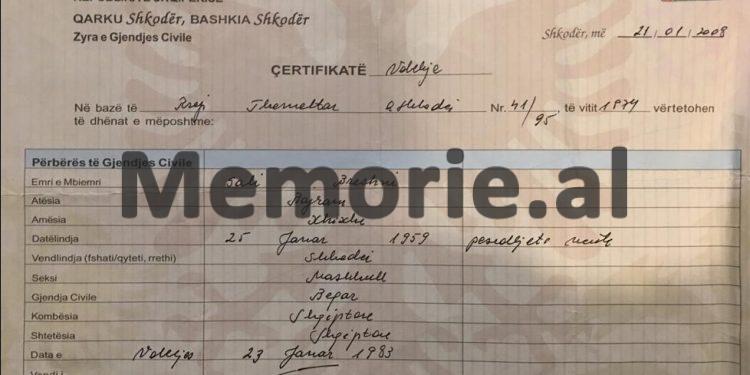 QARKU Shkodër, BASHKIA Shkodër
Zyra e Gjendjes Civile
Shkodër, më 21/01/2008
ÇERTIFIKATË Vdekje
Në bazë të Themeltar Nr. 41/95, të vitit 1974 vërtetohen
të dhënat e mëposhtme:
Përbërës të Gjendjes Civile
Memorie.al
Emri e Mbiemri Sali
Atësia Bajram
Amësia Xhixhe
Datëlindja 25 Janar 1959
Vendlindja (fshati/qyteti, rrethi) Shkodër
Seksi Mashkull
Gjendja Civile Beqar
Kombësia Shqiptare
Shtetësia Shqiptare
Data e Vdekjes 23 Janar 1983